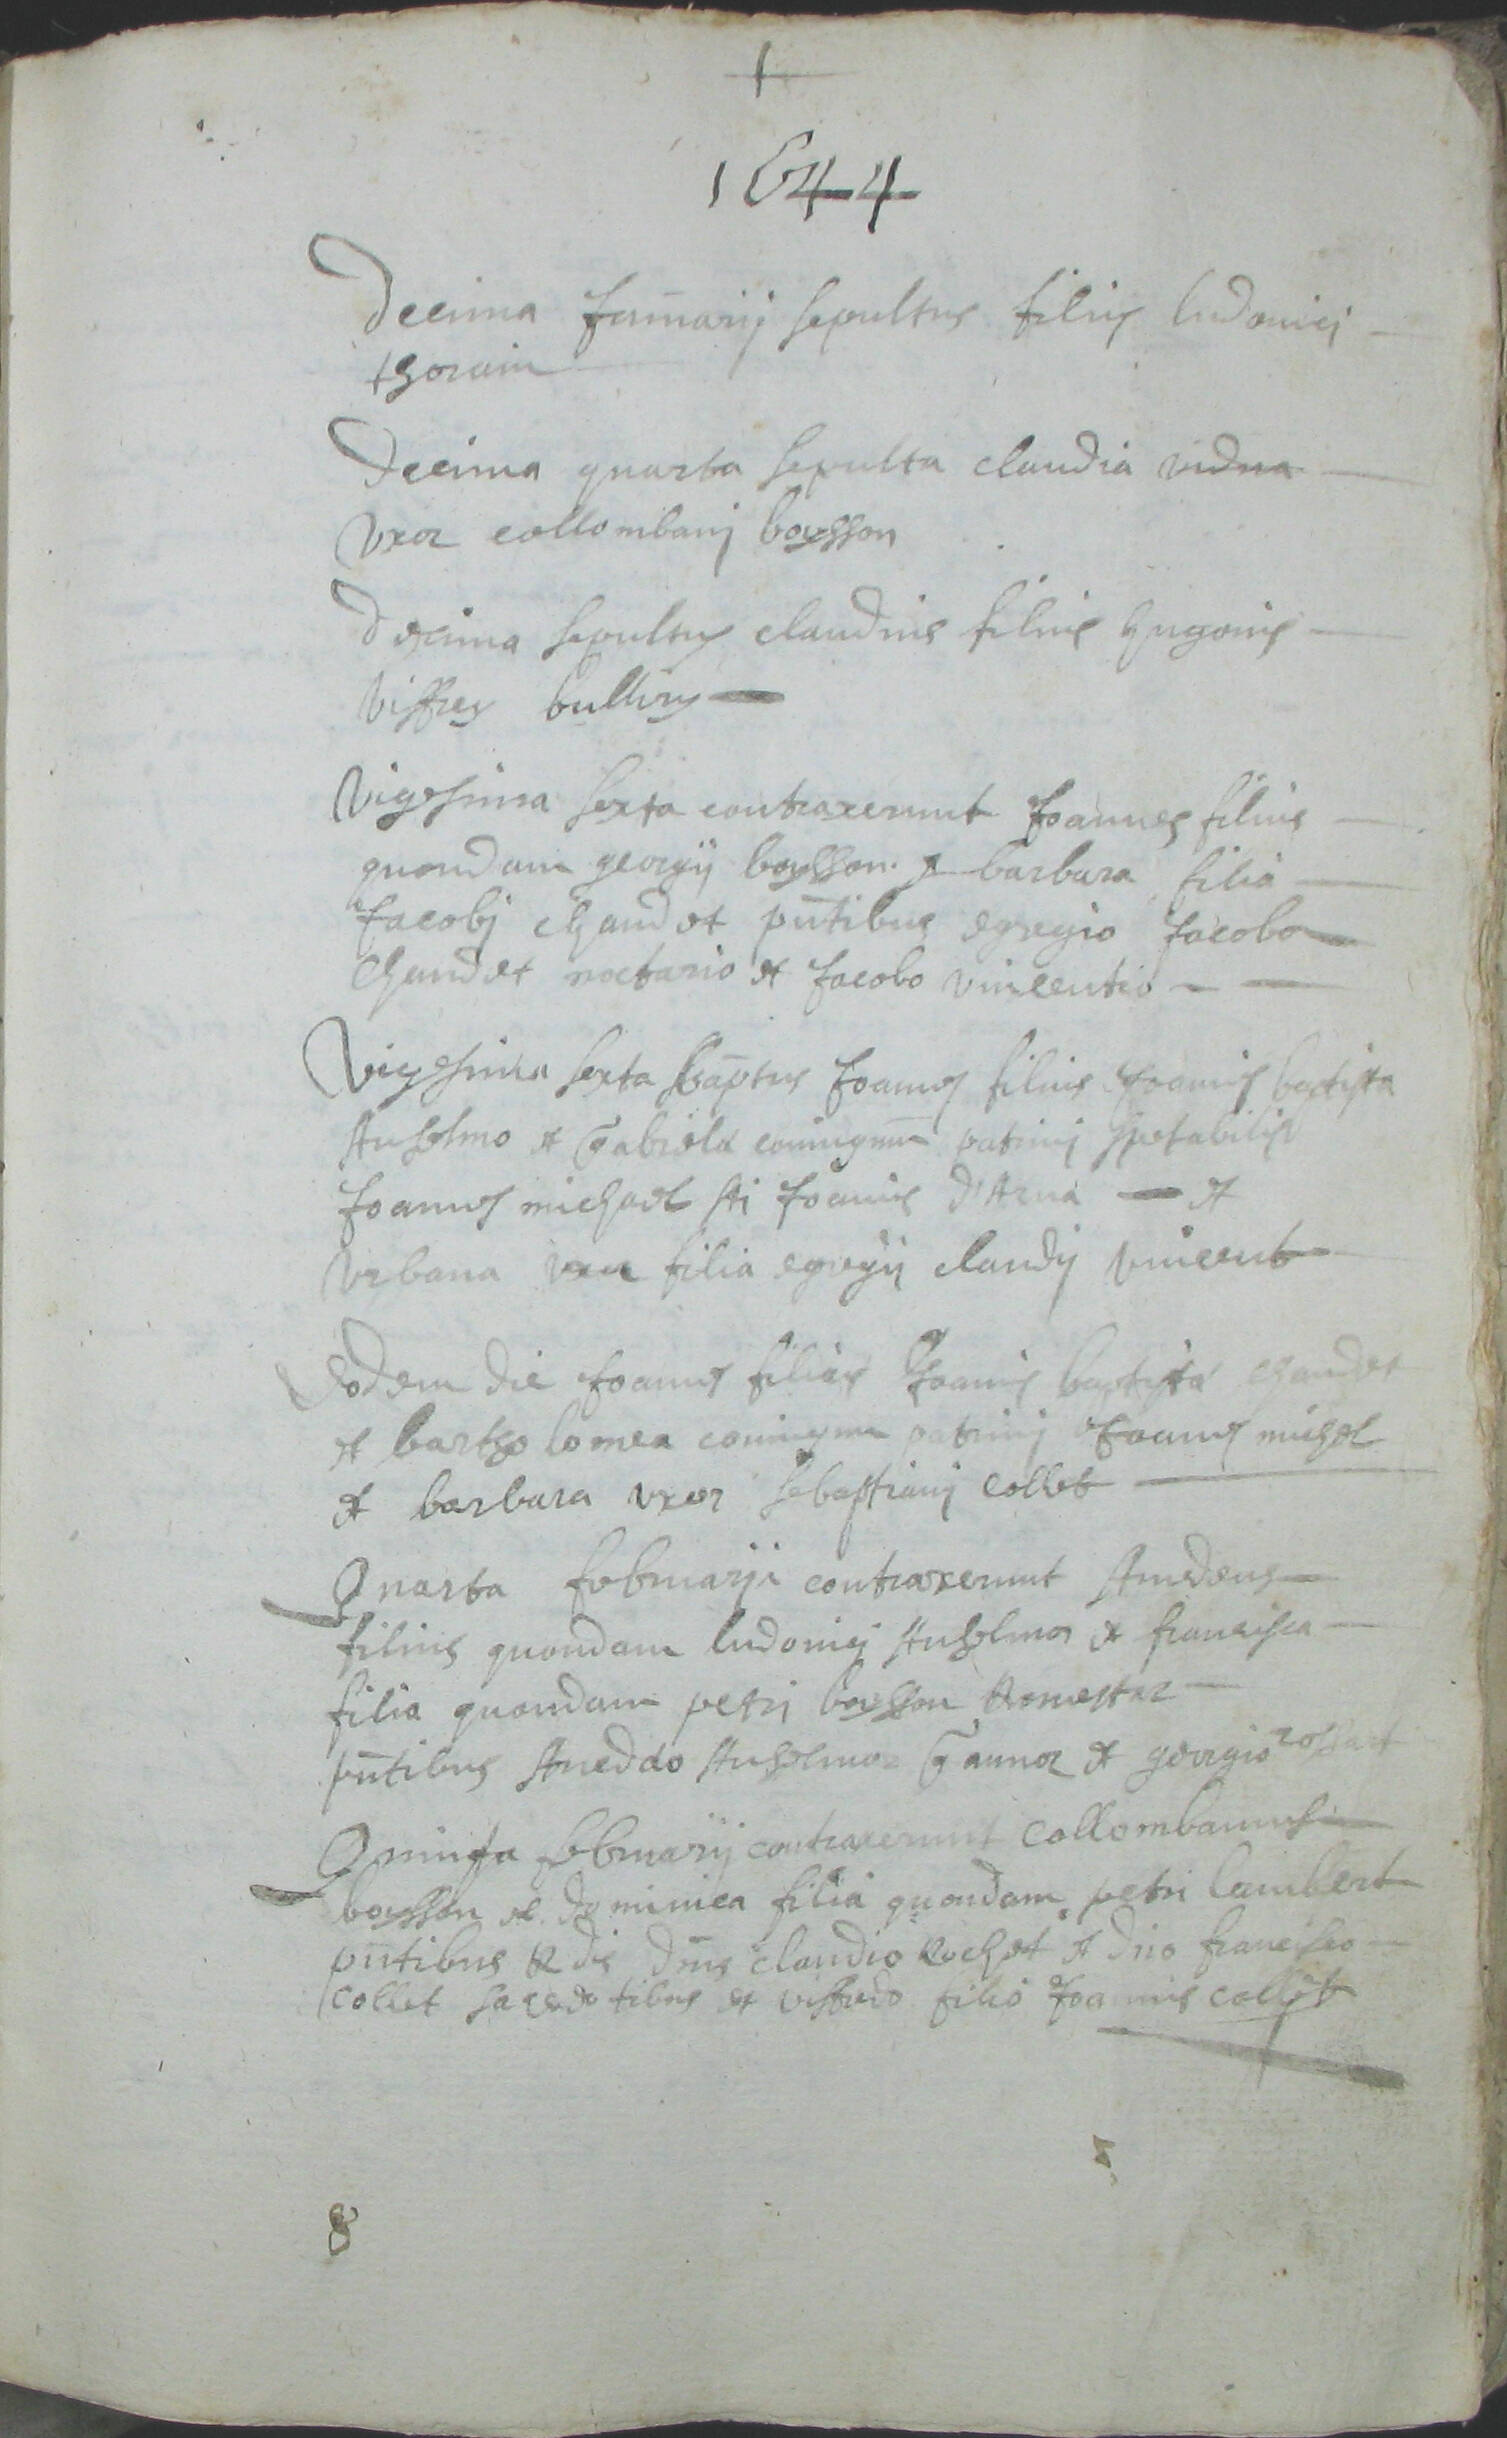 1644
Decima Januarij sepultus filius ludovici
thorain
Decima quarta sepulta claudia vidua
vxor collombani boysson
Decima sepultus claudius filius hugonis
viffrey
Vigesima sexta contraxerunt Joannes filius
quondam georgij boysson & barbara filia
Jacobi chaudet pntibus egregio Jacobo
Chaudet noctario et Jacobo vincentio
Vigesima sexta baptus Joannes filius Joannis baptista
Anselmo et Gabriela coniugum patrini spectabilis
Joannes michael Joannis d'Arna et
vrbana filia egregij claudij vincent
Eodem die Joannes filius Joannis baptista chaudet
et bartholomea coniugum patrini Joannes michel
et barbara vxor sebastiani collet
Quarta februarij contraxerunt Amedeus
filius quondam ludovici Anselmo et francisca
filia quondam petri boysson
pntibus Anselmo et georgio
Quinta februarij contraxerunt Collombanus
boysson et dominica filia quondam petri lambert
pntibus Rdis dnis claudio Rochet et dno francisco
collet sacerdotibus et viffredo filio Joannis collet
8